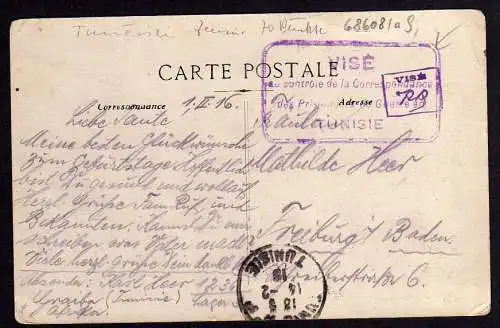 Tunesien Zensur 70 Punkte 686081aS
VISÉ
au contrôle de la Correspondance
des Prisonniers de Guerre en
TUNISIE
VISÉ
CARTE POSTALE
Correspondance
Adresse
1.II.16.
Liebe Tante
Meine besten Glückwünsche
zum Geburtstage Hoffentlich
bist Du gesund und wohlauf
Herzl. Grüße
Bekannten. Kannst Du mir
schreiben was Peter macht
Viele herzl. Grüße Dein dankb.
Absender: Karl Heer 1236
Graiba (Tunisie) Lager
Afrika.
Fräulein
Mathilde Heer
Freiburg i Baden
straße 6.
TUNISIE
14 -2
16